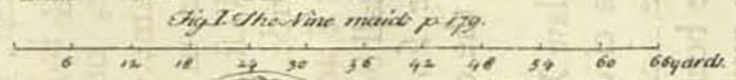 Fig. I. The Nine maids p. 179.
6 12 18 24 30 36 42 48 54 60 66 yards.